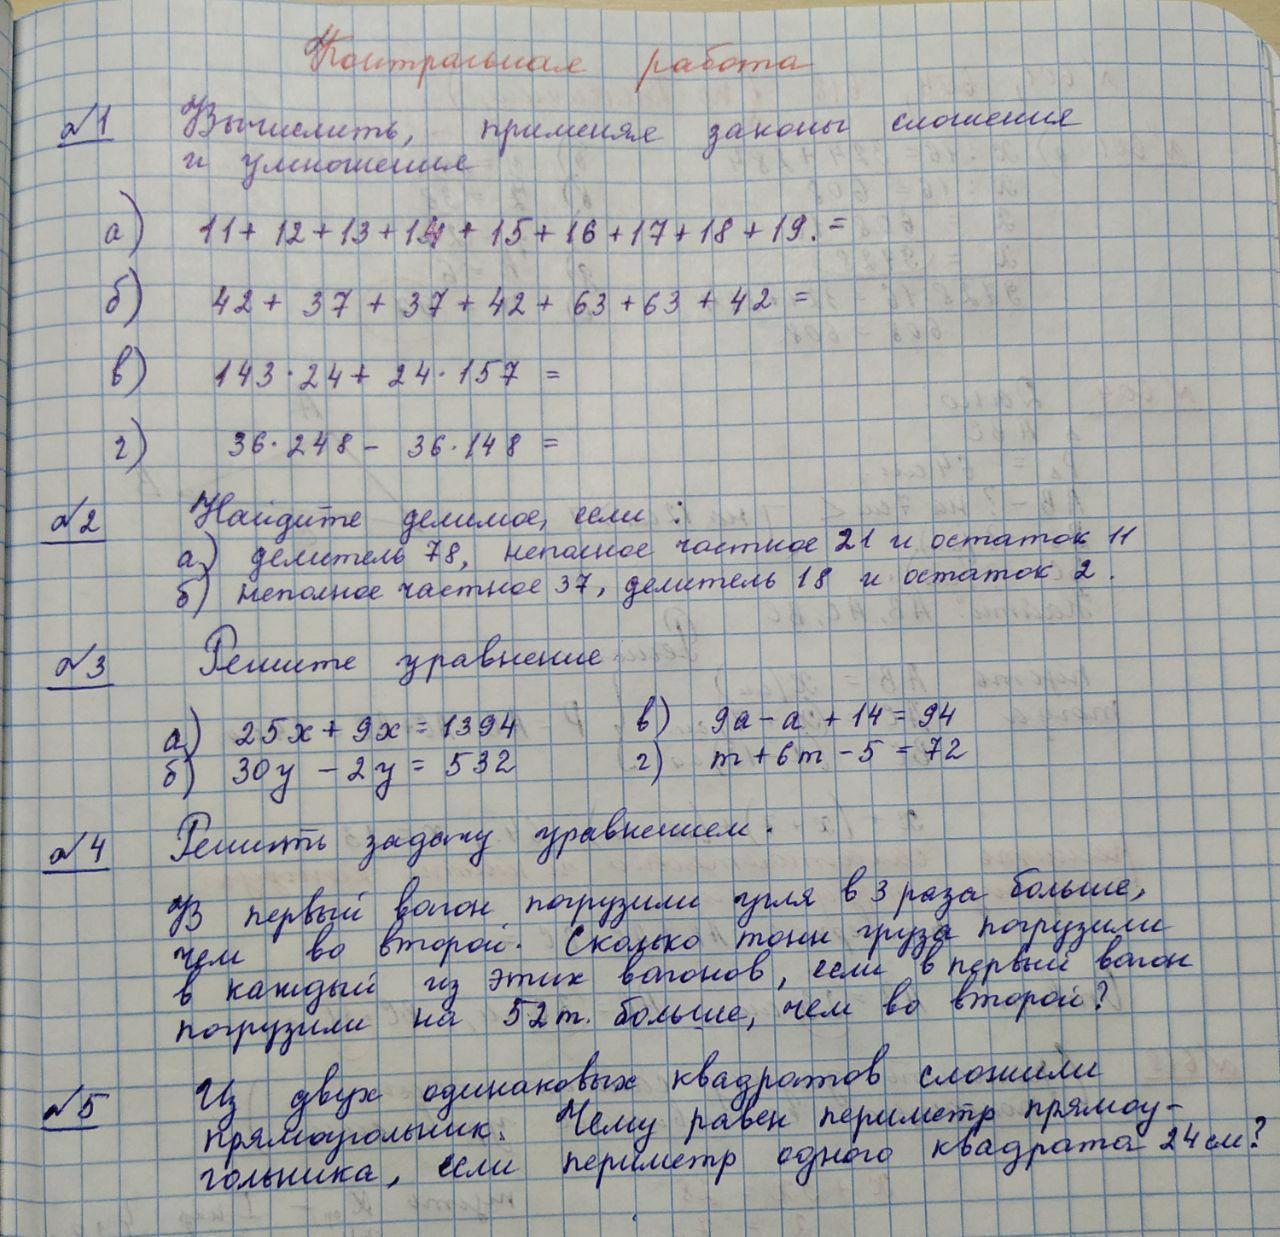 Контрольная работа
№1 Вычислить, применяя законы сложения
и умножения
а) 11+12+13+14+15+16+17+18+19.=
б) 42+37+37+42+63+63+42=
в) 143·24+24·157=
г) 36·248-36·148=
№2 Найдите делимое, если:
а) делитель 78, неполное частное 21 и остаток 11
б) неполное частное 37, делитель 18 и остаток 2.
№3 Решите уравнение
а) 25x+9x=1394 в) 9a-a+14=94
б) 30y-2y=532 г) m+6m-5=72
№4 Решить задачу уравнением.
В первый вагон погрузили угля в 3 раза больше,
чем во второй. Сколько тонн груза погрузили
в каждый из этих вагонов, если в первый вагон
погрузили на 52т. больше, чем во второй?
№5 Из двух одинаковых квадратов сложили
прямоугольник. Чему равен периметр прямоу-
гольника, если периметр одного квадрата 24см?